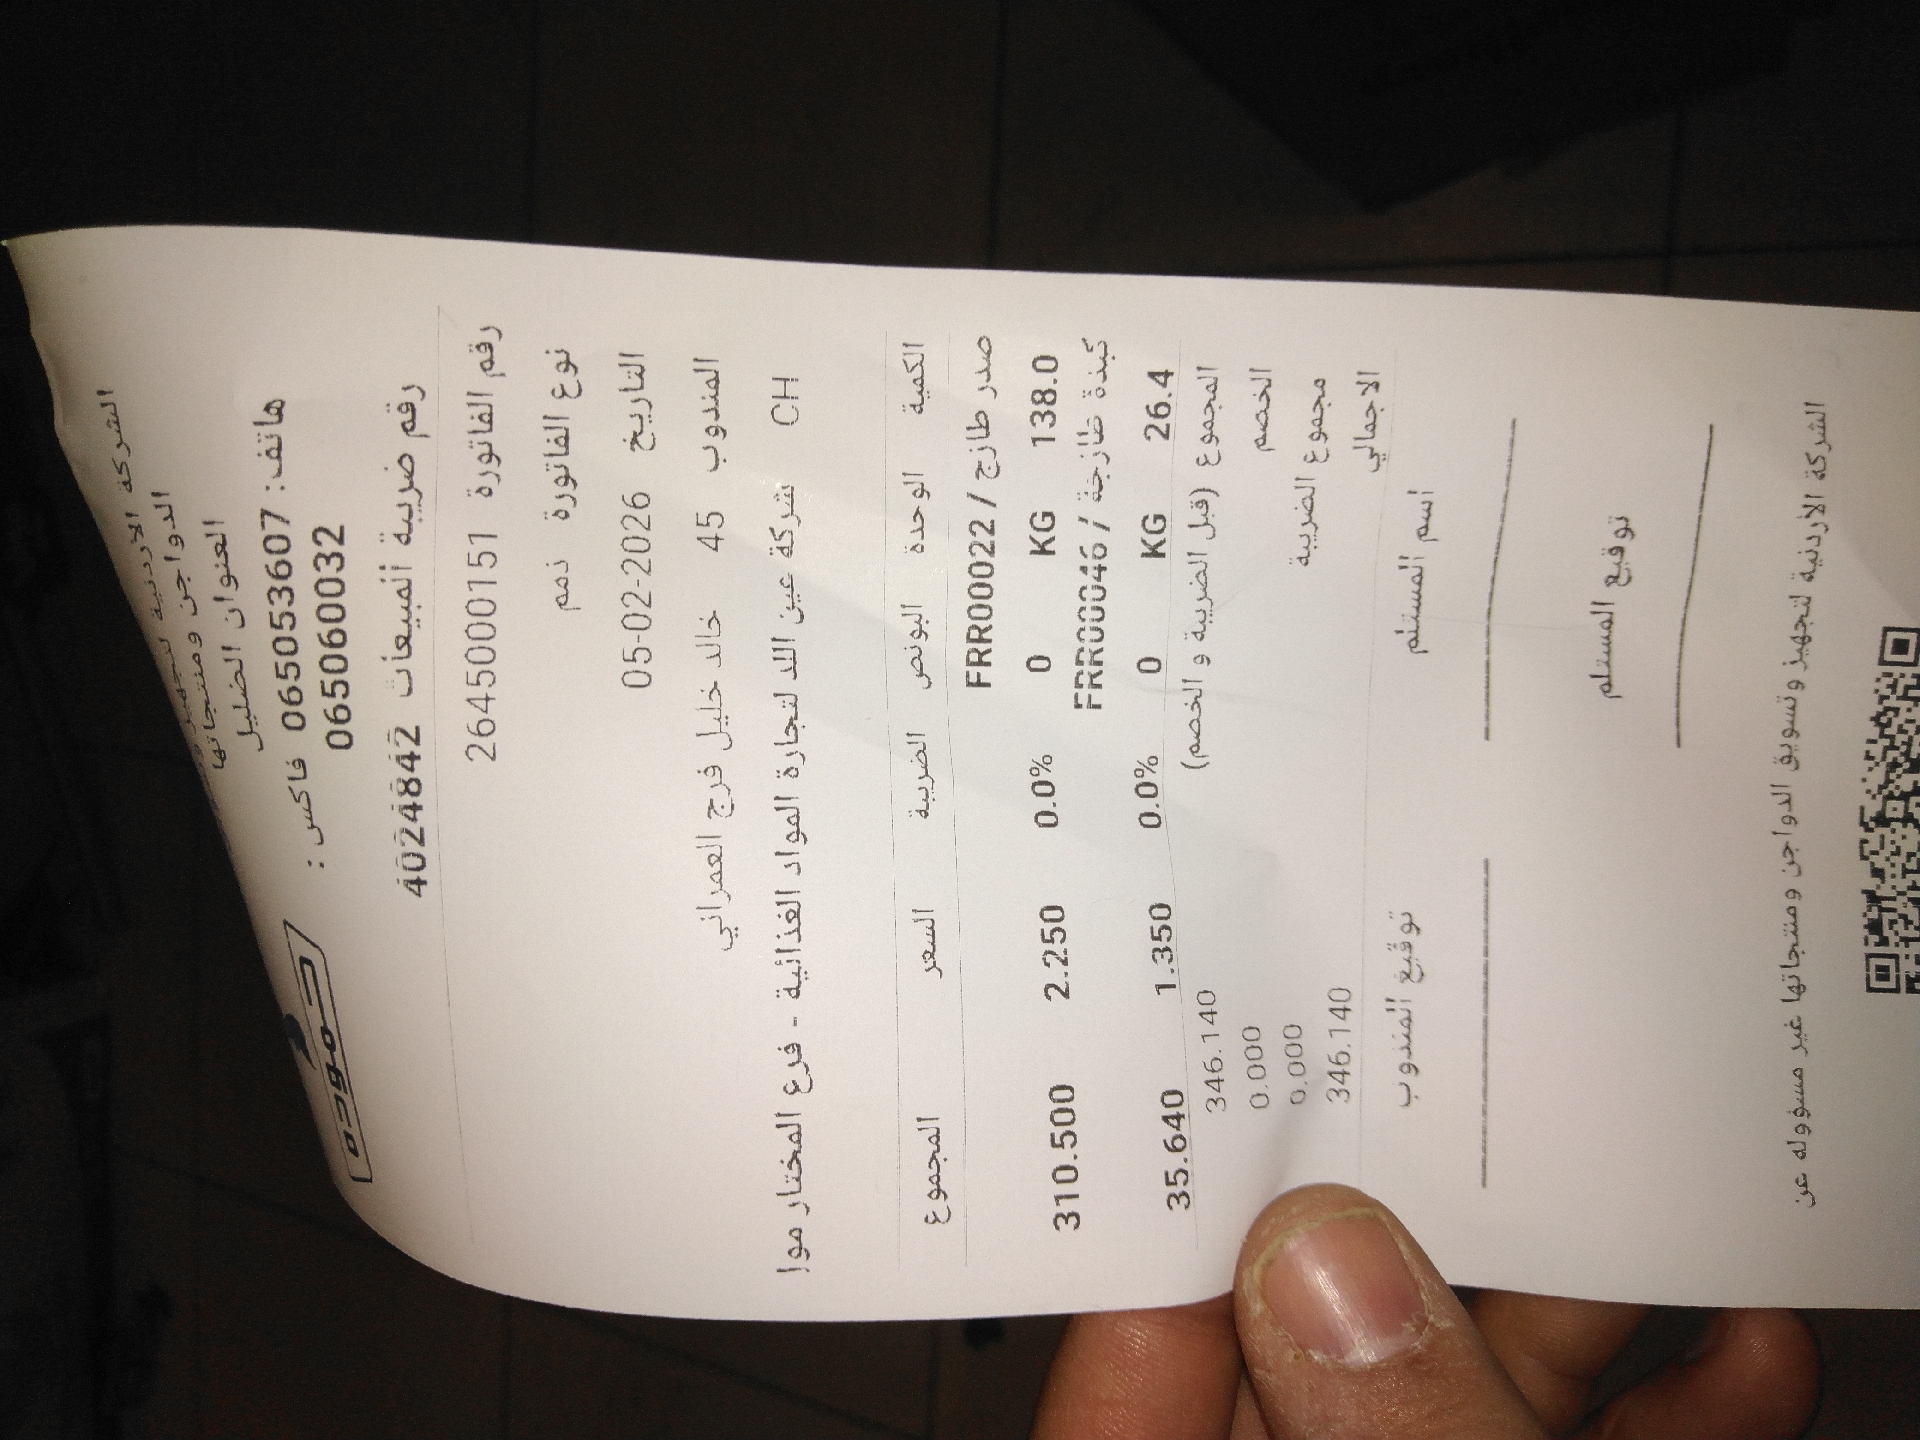 الشركة الاردنية لتجهيز
الدواجن ومنتجاتها
العنوان الضليل
هاتف: 065053607 فاكس :
065060032
حمودة
رقم ضريبة المبيعات 4024842
رقم الفاتورة 26450000151
نوع الفاتورة ذمم
التاريخ 05-02-2026
المندوب 45 خالد خليل فرج العمراني
CH شركة عين اللد لتجارة المواد الغذائية - فرع المختار موا
الكمية الوحدة البونص الضريبة السعر المجموع
صدر طازج / FRR00022
138.0 KG 0 0.0% 2.250 310.500
كبدة طازجة / FRR00046
26.4 KG 0 0.0% 1.350 35.640
المجموع (قبل الضريبة و الخصم) 346.140
الخصم 0.000
مجموع الضريبة 0.000
الاجمالي 346.140
اسم المستلم توقيع المندوب
توقيع المستلم
الشركة الأردنية لتجهيز وتسويق الدواجن ومنتجاتها غير مسؤوله عن